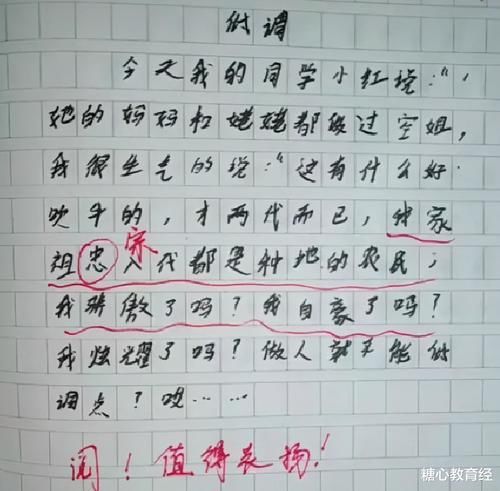 低调
今天我的同学小红说：“，
她的妈妈和姥姥都做过空姐，
我很生气的说：“这有什么好
吹牛的，才两代而已，我家
宗
祖忠八代都是种地的农民，
我骄傲了吗？我自豪了吗？
我炫耀了吗？做人就不能低
调点？哎……
阅！值得表扬！
糖心教育经